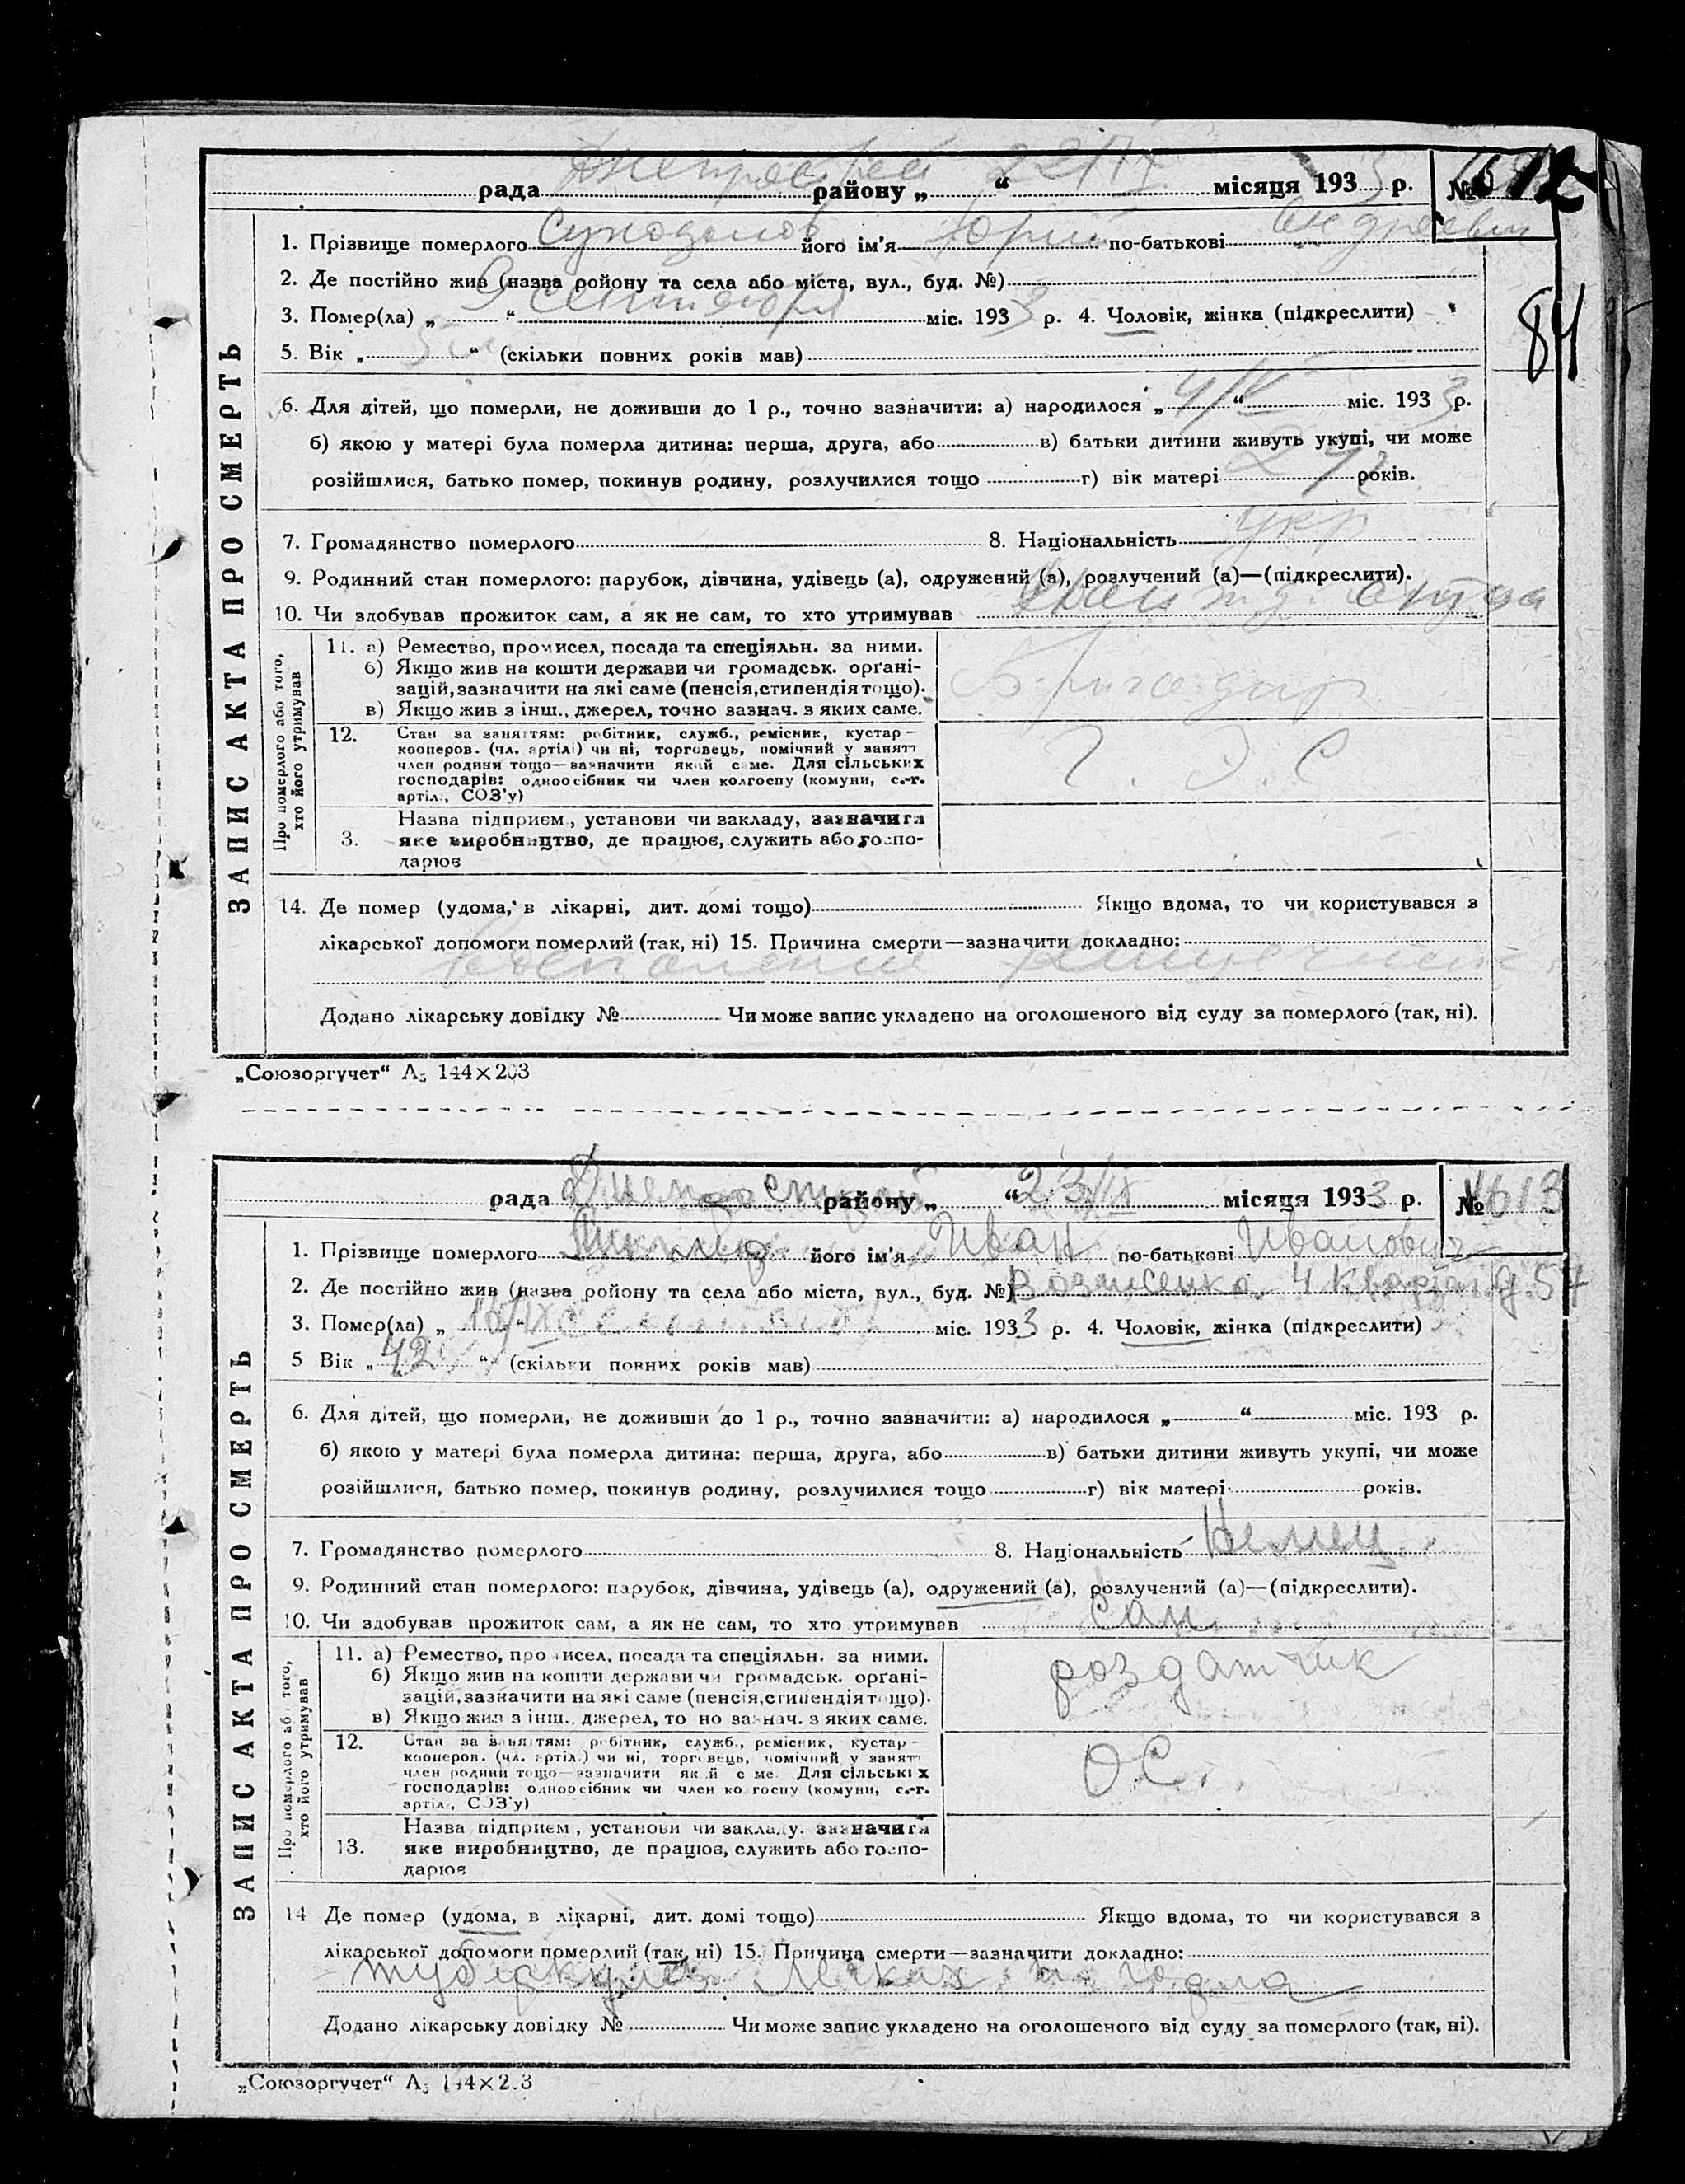 Днепрострой 22/IX
рада районy „ “ місяця 1933 р. № 612
1. Прізвище померлого його ім'я Юрий по-батькові Андреевич
2. Де постійно жив (назва ройону та села або міста, вул., буд. №)
3. Помер(ла) „ 9 “ сентября міс. 1933 р. 4. Чоловік, жінка (підкреслити)
84
5. Вік „ 5 м “ (скільки повних років мав)
6. Для дітей, що померли, не доживши до 1 р., точно зазначити: а) народилося „ 4/IV “ міс. 1933 р.
б) якою у матері була померла дитина: перша, друга, або в) батьки дитини живуть укупі, чи може
розійшлися, батько помер, покинув родину, розлучилися тощо г) вік матері років.
7. Громадянство померлого 8. Національність укр
9. Родинний стан померлого: парубок, дівчина, удівець (а), одружений (а), розлучений (а)—(підкреслити).
10. Чи здобував прожиток сам, а як не сам, то хто утримував отца
ЗАПИС АКТА ПРО СМЕРТЬ
Про померлого або того, хто його утримував
11. а) Ремество, промисел, посада та спеціяльн. за ними.
б) Якщо жив на кошти держави чи громадськ. орґані-
зацій, зазначити на які саме (пенсія, стипендія тощо).
в) Якщо жив з інш., джерел, точно зазнач. з яких саме.
Бригадир
12. Стан за заняттям: робітник, служб., ремісник, кустар-
кооперов. (чл. артілі) чи ні, торговець, помічний у занятт
член родини тощо—зазначити який саме. Для сільських
господарів: одноосібник чи член колгоспу (комуни, с.-г.
артіл., СОЗ'у)
Г. Э. С
Назва підприєм., установи чи закладу, зазначити
3. яке виробництво, де працює, служить або госпо-
дарює
14. Де помер (удома, в лікарні, дит. домі тощо) Якщо вдома, то чи користувався з
лікарської допомоги померлий (так, ні) 15. Причина смерти—зазначити докладно:
Воспаление кишечника
Додано лікарську довідку № Чи може запис укладено на оголошеного від суду за померлого (так, ні).
„Союзоргучет“ А5 144×203
рада Днепрострой району „ “ 23/IX місяця 1933 р. № 613
1. Прізвище померлого його ім'я Иван по-батькові Иванович
2. Де постійно жив (назва ройону та села або міста, вул., буд. №) Вознесенка 4 квартал д. 57
3. Помер(ла) „ “ міс. 1933 р. 4. Чоловік, жінка (підкреслити)
5 Вік „ 42 “ (скільки повних років мав)
6. Для дітей, що померли, не доживши до 1 р., точно зазначити: а) народилося „ “ міс. 193 р.
б) якою у матері була померла дитина: перша, друга, або в) батьки дитини живуть укупі, чи може
розійшлися, батько помер, покинув родину, розлучилися тощо г) вік матері років.
7. Громадянство померлого 8. Національність Немец
9. Родинний стан померлого: парубок, дівчина, удівець (а), одружений (а), розлучений (а)—(підкреслити).
10. Чи здобував прожиток сам, а як не сам, то хто утримував Сам
ЗАПИС АКТА ПРО СМЕРТЬ
Про померлого або того, хто його утримував
11. а) Ремество, промисел, посада та спеціяльн. за ними.
б) Якщо жив на кошти держави чи громадськ. орґані-
зацій, зазначити на які саме (пенсія, стипендія тощо).
в) Якщо жив з інш., джерел, точно зазнач. з яких саме.
роздатчик
12. Стан за заняттям: робітник, служб., ремісник, кустар-
кооперов. (чл. артіл.) чи ні, торговець, помічний у занятт
член родини тощо—зазначити який саме. Для сільських
господарів: одноосібник чи член колгоспу (комуни, с.-г.
артіл., СОЗ'у)
О.С.
Назва підприєм., установи чи закладу, зазначити
13. яке виробництво, де працює, служить або госпо-
дарює
14 Де помер (удома, в лікарні, дит. домі тощо) Якщо вдома, то чи користувався з
лікарської допомоги померлий (так, ні) 15. Причина смерти—зазначити докладно:
туберкулез легких и горла
Додано лікарську довідку № Чи може запис укладено на оголошеного від суду за померлого (так, ні).
„Союзоргучет“ А5 144×203